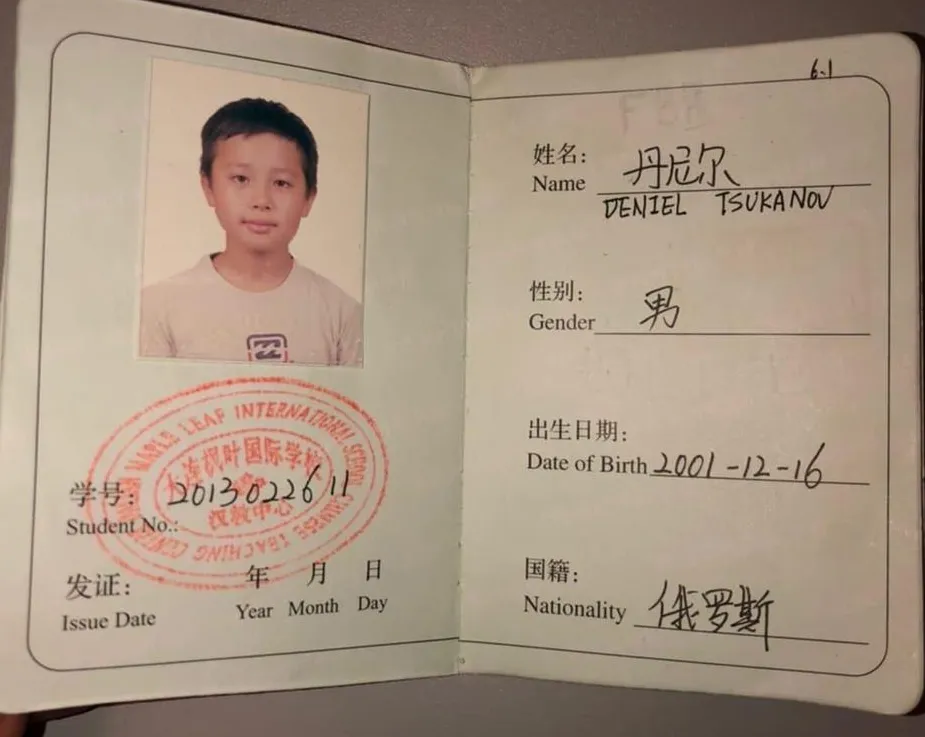 学号: 2013022611
Student No.:
发证: 年 月 日
Issue Date Year Month Day
MAPLE LEAF INTERNATIONAL SCHOOL CHINESE TEACHING CENTER
大连枫叶国际学校
汉教中心
6.1
姓名: 丹尼尔
Name
DENIEL TSUKANOV
性别: 男
Gender
出生日期:
Date of Birth 2001-12-16
国籍:
Nationality 俄罗斯